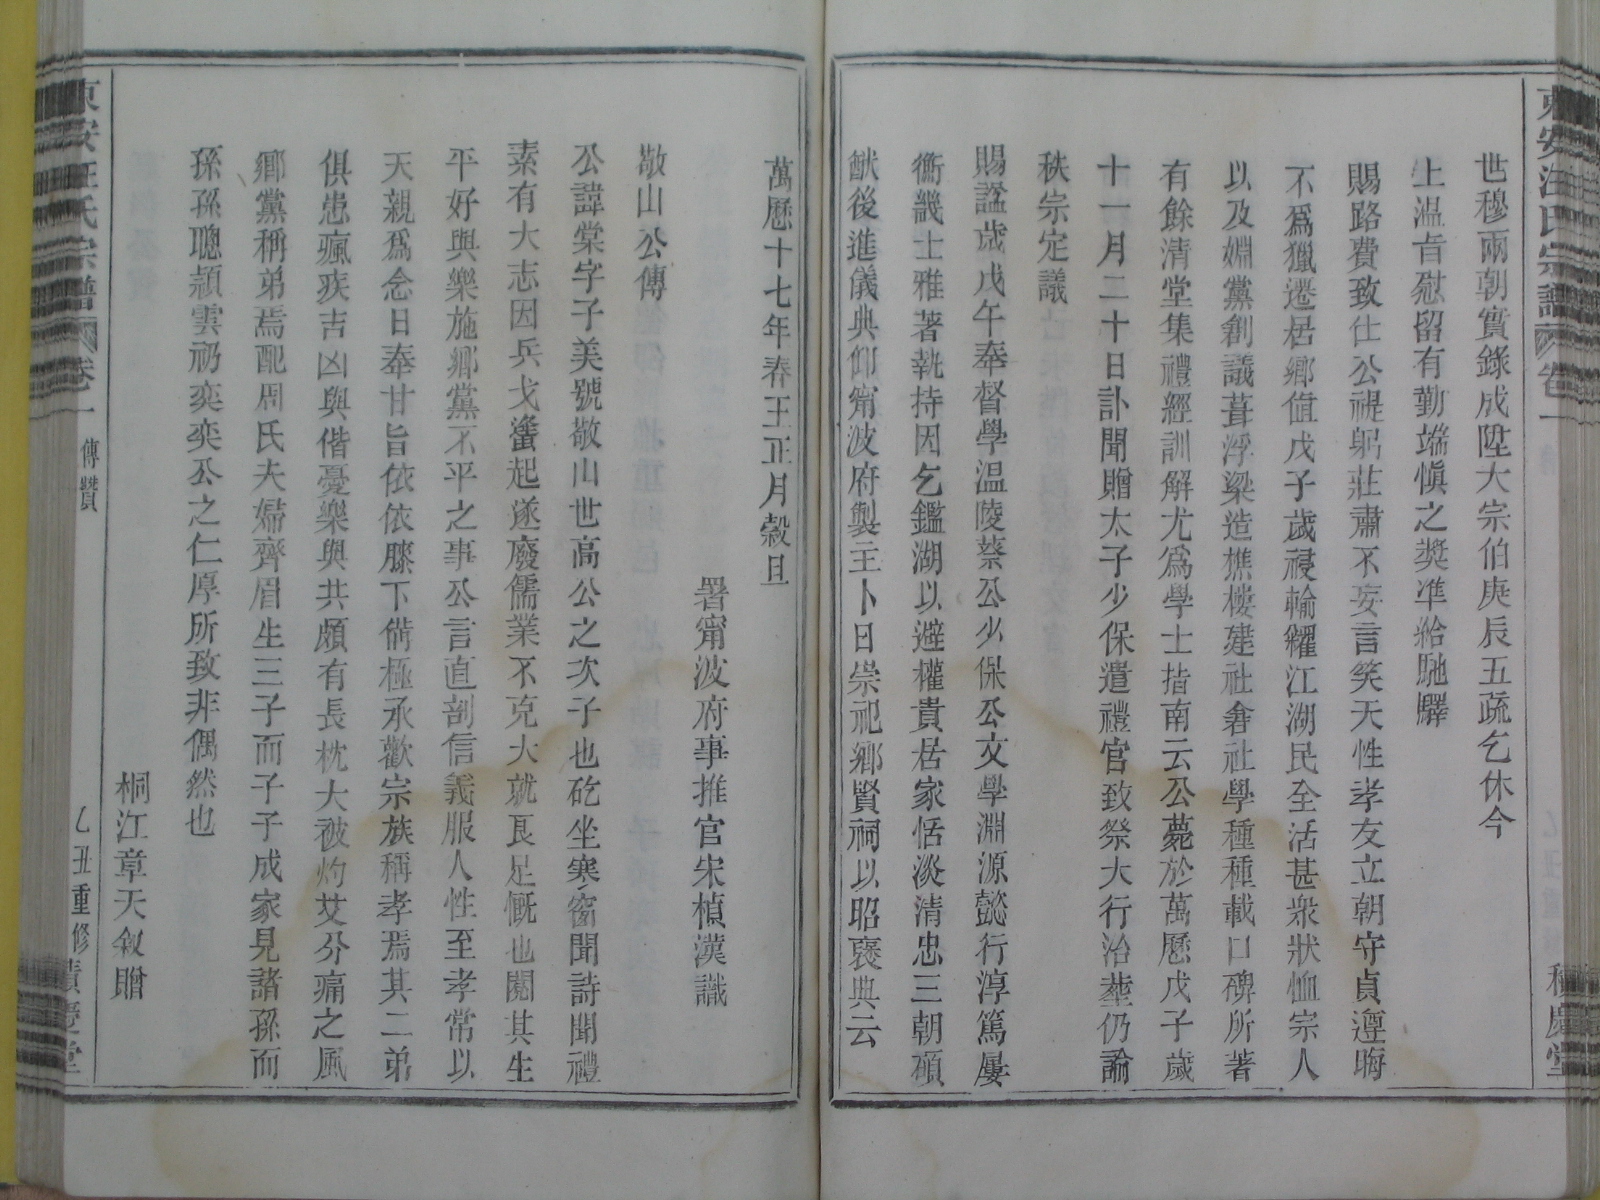 東安汪氏宗譜 卷一
積慶堂
世穆兩朝實錄成陞大宗伯庚辰五疏乞休今
上温旨慰留有勤端慎之奬凖給馳驛
賜路費致仕公禔躬莊肅不妄言笑天性孝友立朝守貞遵晦
不爲獵遷居鄉値戊子歲祲輸糴江湖民全活甚衆狀恤宗人
以及婣黨創議葺浮梁造樵樓建社倉社學種種載口碑所著
有餘清堂集禮經訓解尤爲學士指南云公薨於萬歷戊子歲
十一月二十日訃聞贈太子少保遣禮官致祭大行治塟仍諭
秩宗定議
賜諡歲戊午奉督學温陵蔡公少保公文學淵源懿行淳篤屢
衝譏士雅著執持因乞鑑湖以避權貴居家恬淡清忠三朝碩
猷後進儀典仰甯波府製主卜日崇祀鄉賢祠以昭褒典云
萬歷十七年春王正月穀旦
署甯波府事推官宋楨漢識
敬山公傳
公諱棠字子美號敬山世高公之次子也矻坐寒窗聞詩聞禮
素有大志因兵戈蠭起遂廢儒業不克大就良足慨也閱其生
平好與樂施鄉黨不平之事公言直剖信義服人性至孝常以
天親爲念日奉甘旨依依膝下備極承歡宗族稱孝焉其二弟
俱患瘋疾吉凶與偕憂樂與共頗有長枕大被灼艾分痛之風
鄉黨稱弟焉配周氏夫婦齊眉生三子而子子成家見諸孫而
孫孫聰頴雲礽奕奕公之仁厚所致非偶然也
桐江章天敘贈
東安汪氏宗譜 卷一 傳贊
乙丑重修積慶堂